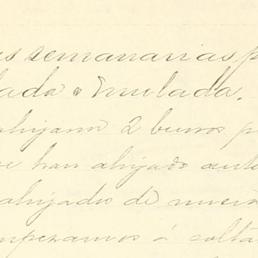 es semanarias p
lada o Emulada.
ahijaron 2 burros p
se han ahijado ante
ahijados de nueve
mpezamos á solta